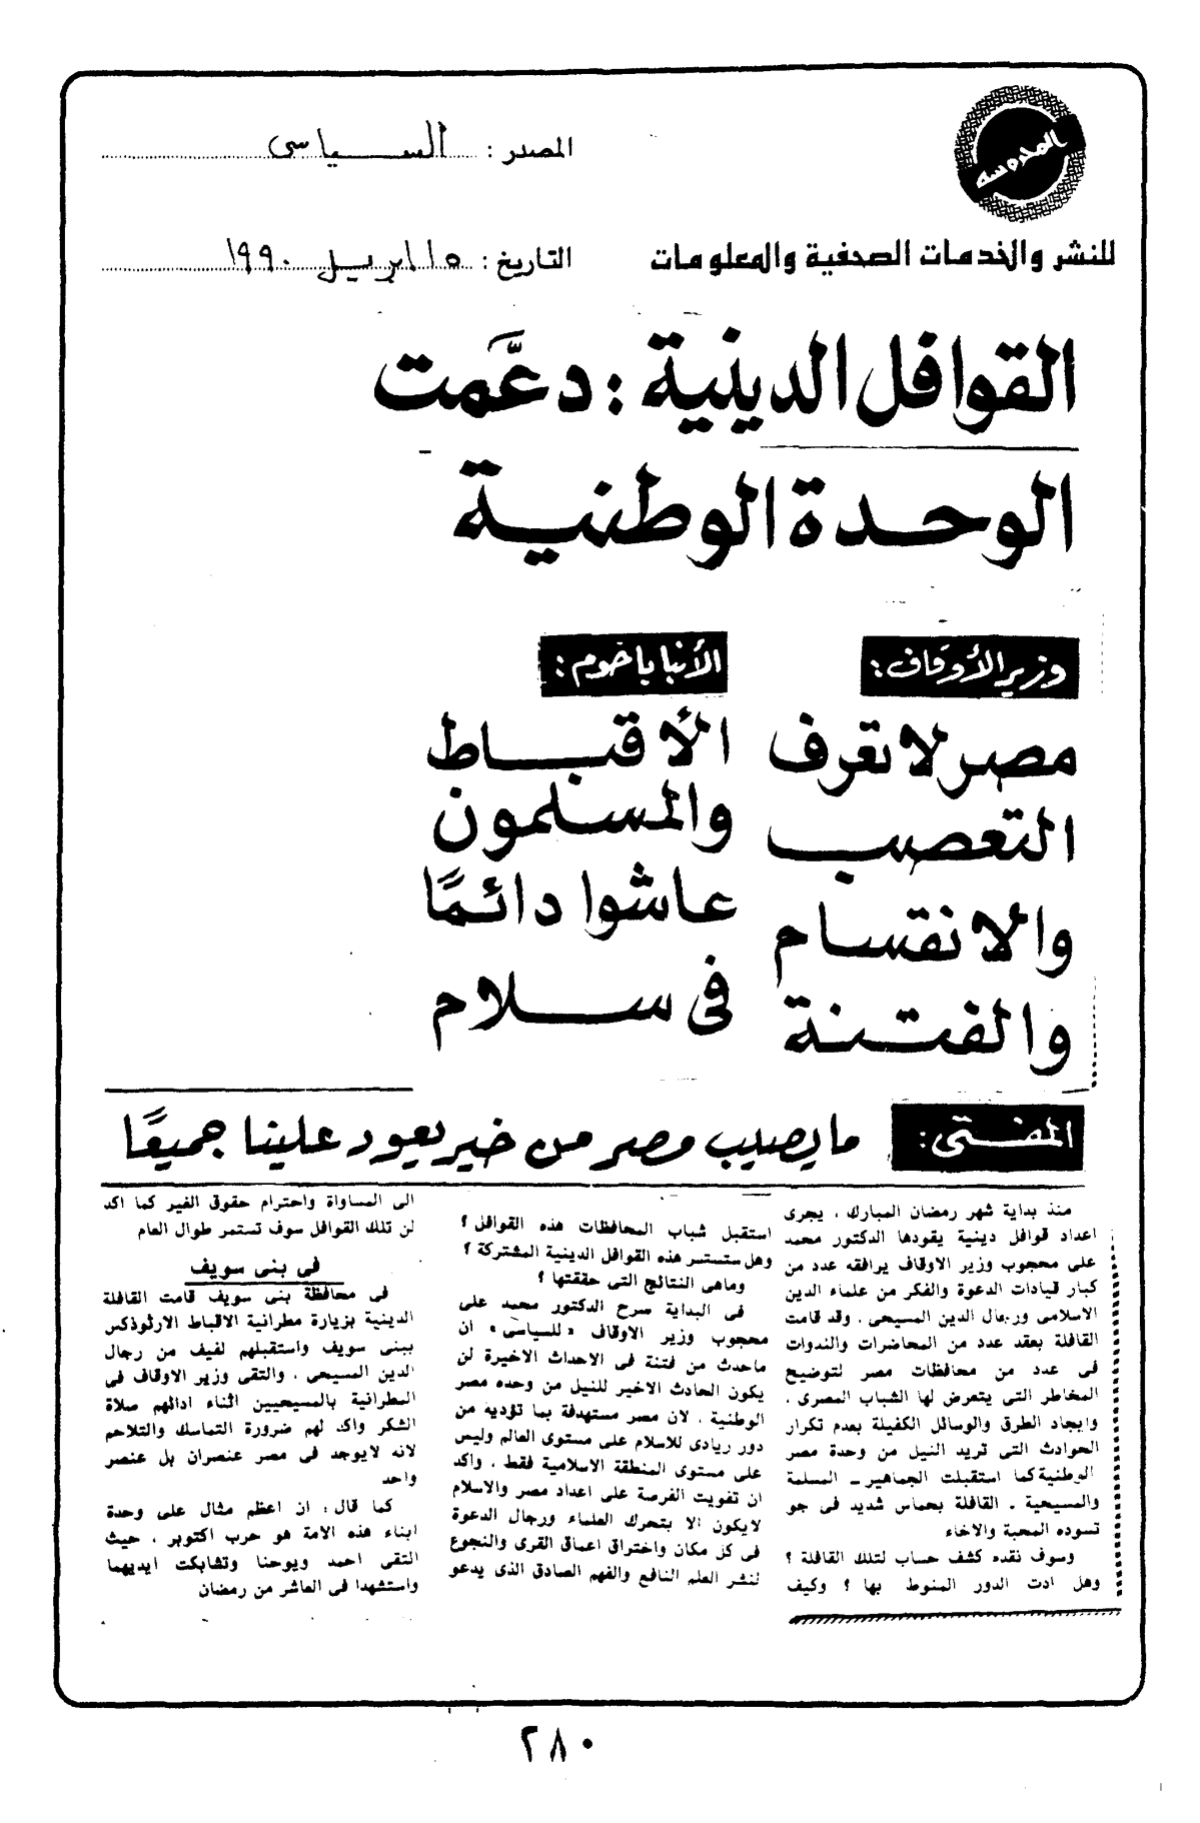 المحروسه
للنشر والخدمات الصحفية والمعلومات
المصدر : السياسى
التاريخ : ١٥ ابريل ١٩٩٠
القوافل الدينية : دعَّمت
الوحدة الوطنية
وزير الأوقاف :
مصر لا تعرف
التعصب
والانقسام
والفتنة
الأنبا باخوم :
الأقباط
والمسلمون
عاشوا دائمًا
فى سلام
المفتى :
ما يصيب مصر من خير يعود علينا جميعًا
منذ بداية شهر رمضان المبارك ، يجرى
اعداد قوافل دينية يقودها الدكتور محمد
على محجوب وزير الاوقاف يرافقه عدد من
كبار قيادات الدعوة والفكر من علماء الدين
الاسلامى ورجال الدين المسيحى . وقد قامت
القافلة بعقد عدد من المحاضرات والندوات
فى عدد من محافظات مصر لتوضيح
المخاطر التى يتعرض لها الشباب المصرى .
وايجاد الطرق والوسائل الكفيلة بعدم تكرار
الحوادث التى تريد النيل من وحدة مصر
الوطنية كما استقبلت الجماهير ـ المسلمة
والمسيحية ـ القافلة بحماس شديد فى جو
تسوده المحبة والاخاء
وسوف نقده كشف حساب لتلك القافلة ؟
وهل ادت الدور المنوط بها ؟ وكيف
استقبل شباب المحافظات هذه القوافل ؟
وهل ستستمر هذه القوافل الدينية المشتركة ؟
وماهى النتائج التى حققتها ؟
فى البداية صرح الدكتور محمد على
محجوب وزير الاوقاف « للسياسى » ان
ماحدث من فتنة فى الاحداث الاخيرة لن
يكون الحادث الاخير للنيل من وحده مصر
الوطنية . لان مصر مستهدفة بما تؤديه من
دور ريادى للاسلام على مستوى العالم وليس
على مستوى المنطقة الاسلامية فقط . واكد
ان تفويت الفرصة على اعداد مصر والاسلام
لايكون الا بتحرك العلماء ورجال الدعوة
فى كل مكان واختراق اعماق القرى والنجوع
لنشر العلم النافع والفهم الصادق الذى يدعو
الى المساواة واحترام حقوق الغير كما اكد
لن تلك القوافل سوف تستمر طوال العام
فى بنى سويف
فى محافظة بنى سويف قامت القافلة
الدينية بزيارة مطرانية الاقباط الارثوذكس
ببنى سويف واستقبلهم لفيف من رجال
الدين المسيحى . والتقى وزير الاوقاف فى
المطرانية بالمسيحيين اثناء ادائهم صلاة
الشكر واكد لهم ضرورة التماسك والتلاحم
لانه لايوجد فى مصر عنصران بل عنصر
واحد
كما قال : ان اعظم مثال على وحدة
ابناء هذه الامة هو حرب اكتوبر . حيث
التقى احمد ويوحنا وتشابكت ايديهما
واستشهدا فى العاشر من رمضان
٢٨٠